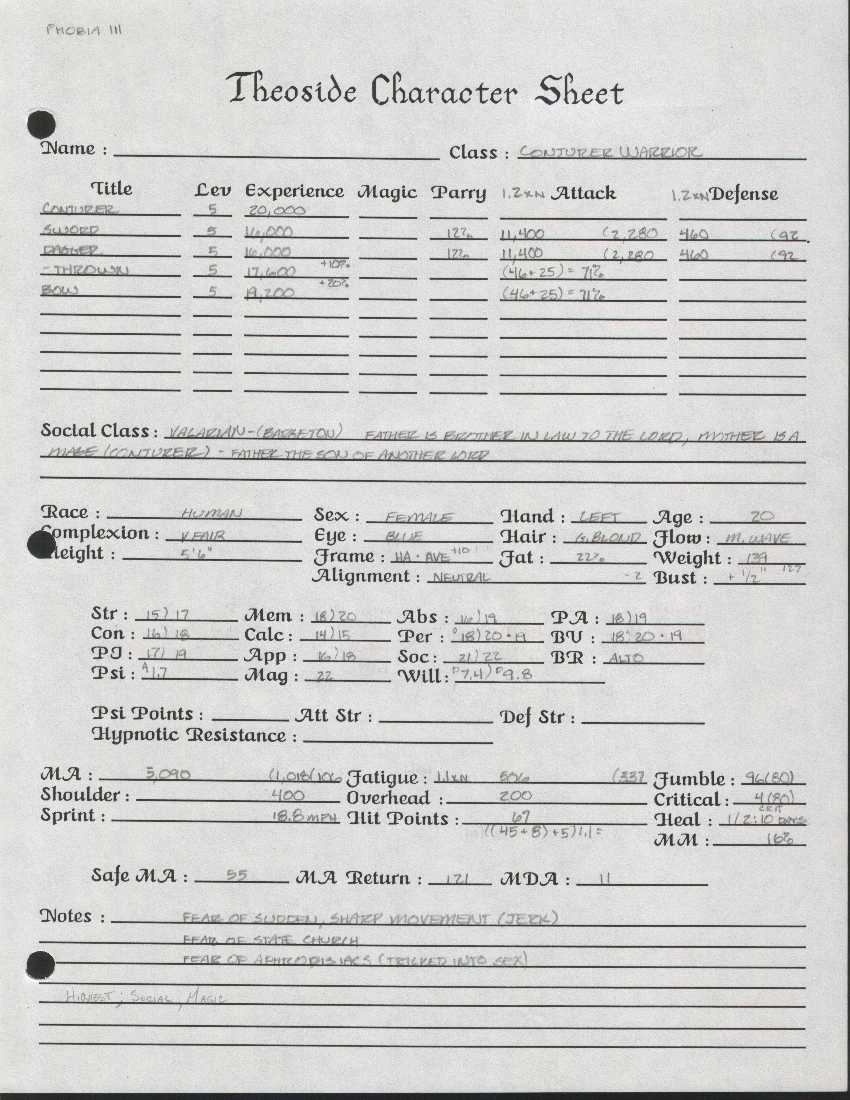 PHOBIA III
Theoside Character Sheet
Name : Class : CONJURER WARRIOR
Title Lev Experience Magic Parry 1.2xN Attack 1.2xN Defense
CONJURER 5 20,000
SWORD 5 16,000 12% 11,400 (2,280 460 (92
DAGGER 5 16,000 12% 11,400 (2,280 460 (92
- THROWN 5 17,600 +10% (46+25) = 71%
BOW 5 19,200 +20% (46+25) = 71%
Social Class : VALARIAN - FATHER IS BROTHER IN LAW TO THE LORD, MOTHER IS A
MAGE (CONJURER) - FATHER THE SON OF ANOTHER LORD
Race : HUMAN Sex : FEMALE Hand : LEFT Age : 20
Complexion : V.FAIR Eye : BLUE Hair : G.BLOND Flow : M.WAVE
Height : 5'6" Frame : HA·AVE +10 Fat : 22% Weight : 139
Alignment : NEUTRAL -2 Bust : + 1/2" 127
Str : 15)17 Mem : 18)20 Abs : 16)19 PA : 18)19
Con : 16)18 Calc : 14)15 Per : 18)20·19 BV : 18 20·19
PJ : 17)19 App : 16)18 Soc : 21)22 BR : ALTO
Psi : A 1.7 Mag : 22 Will : P7.4)P9.8
Psi Points : Att Str : Def Str :
Hypnotic Resistance :
MA : 3,090 (1,018(106 Fatigue : 1.1xN 506 (337 Fumble : 96(80)
Shoulder : 400 Overhead : 200 Critical : 4(80)
Sprint : 18.8 MPH Hit Points : 67 Heal : 1/2:10 DAYS
((45+8)+5)1.1= MM : 16%
Safe MA : 55 MA Return : 121 MDA : 11
Notes : FEAR OF SUDDEN, SHARP MOVEMENT (JERK)
FEAR OF STATE CHURCH
FEAR OF APHRODISIACS (TRICKED INTO SEX)
HIGHEST; SOCIAL, MAGIC